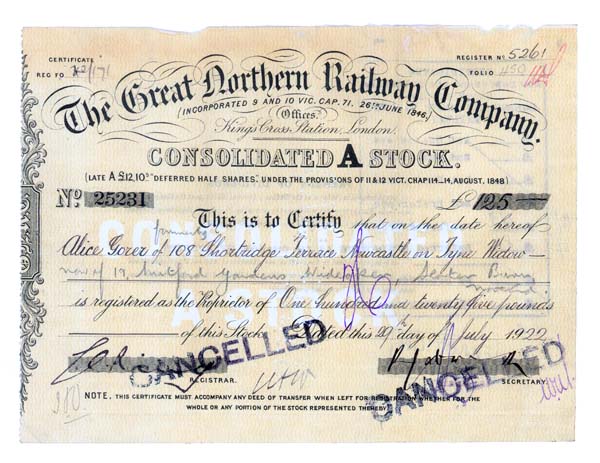 CERTIFICATE
REG FO
REGISTER Nº 5261
FOLIO 450
The Great Northern Railway Company.
(INCORPORATED 9 AND 10 VIC. CAP. 71. 26TH JUNE 1846.)
Offices,
King's Cross Station, London.
CONSOLIDATED A STOCK.
(LATE A £12,10S "DEFERRED HALF SHARES" UNDER THE PROVISIONS OF 11 & 12 VICT. CHAP 114-14, AUGUST, 1848)
Nº 25231
£ 125
This is to Certify that on the date hereof
formerly
Alice Gorer of 108 Shortridge Terrace Newcastle on Tyne Widow
now of 19, Gardens
is registered as the Proprietor of One Hundred and twenty five pounds
of this Stock. Dated this 29th day of July 1922
CANCELLED
CANCELLED
REGISTRAR.
SECRETARY.
NOTE, THIS CERTIFICATE MUST ACCOMPANY ANY DEED OF TRANSFER WHEN LEFT FOR REGISTRATION WHETHER FOR THE
WHOLE OR ANY PORTION OF THE STOCK REPRESENTED THEREBY